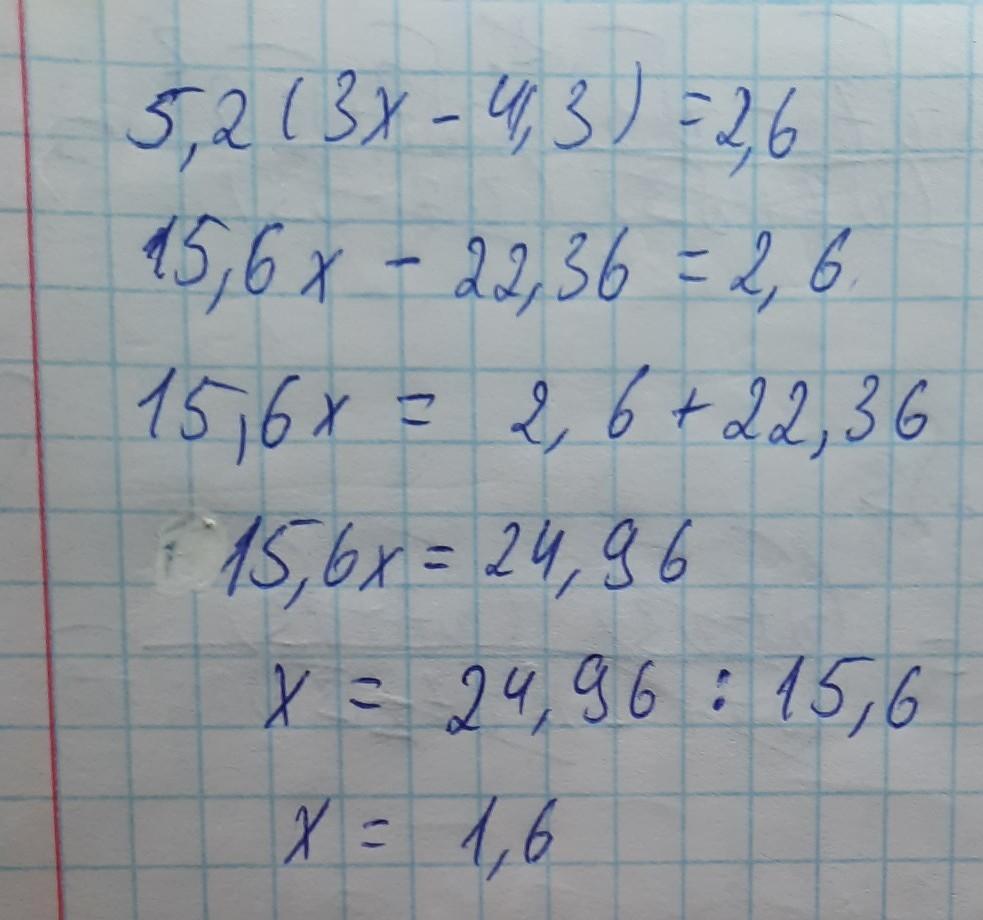 5,2(3x - 4,3) = 2,6
15,6x - 22,36 = 2,6
15,6x = 2,6 + 22,36
15,6x = 24,96
x = 24,96 : 15,6
x = 1,6